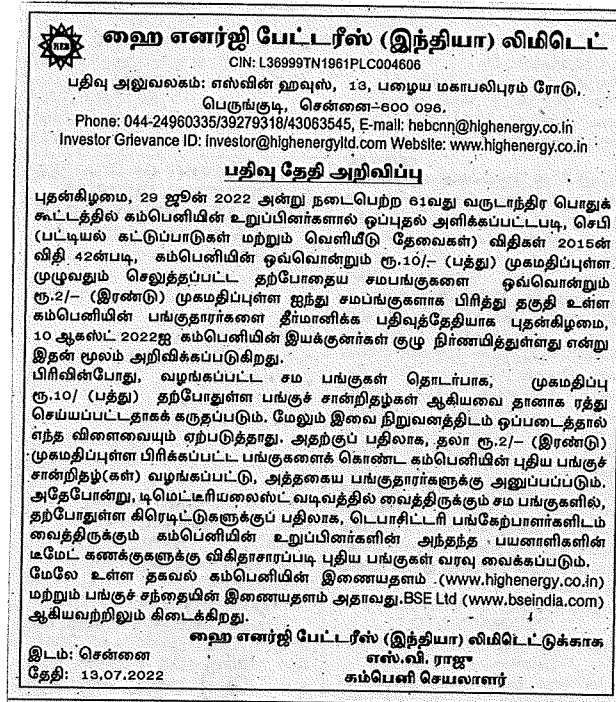 HEB
ஹை எனர்ஜி பேட்டரீஸ் (இந்தியா) லிமிடெட்
CIN: L36999TN1961PLC004606
பதிவு அலுவலகம்: எஸ்வின் ஹவுஸ், 13, பழைய மகாபலிபுரம் ரோடு,
பெருங்குடி, சென்னை-600 096.
Phone: 044-24960335/39279318/43063545, E-mail: hebcnn@highenergy.co.in
Investor Grievance ID: investor@highenergyltd.com Website: www.highenergy.co.in
பதிவு தேதி அறிவிப்பு
புதன்கிழமை, 29 ஜூன் 2022 அன்று நடைபெற்ற 61வது வருடாந்திர பொதுக்
கூட்டத்தில் கம்பெனியின் உறுப்பினர்களால் ஒப்புதல் அளிக்கப்பட்டபடி, செபி
(பட்டியல் கட்டுப்பாடுகள் மற்றும் வெளியீடு தேவைகள்) விதிகள் 2015ன்
விதி 42ன்படி, கம்பெனியின் ஒவ்வொன்றும் ரூ.10/- (பத்து) முகமதிப்புள்ள
முழுவதும் செலுத்தப்பட்ட தற்போதைய சமபங்குகளை ஒவ்வொன்றும்
ரூ.2/- (இரண்டு) முகமதிப்புள்ள ஐந்து சமப்ங்குகளாக பிரித்து தகுதி உள்ள
கம்பெனியின் பங்குதாரர்களை தீர்மானிக்க பதிவுத்தேதியாக புதன்கிழமை,
10 ஆகஸ்ட் 2022ஐ கம்பெனியின் இயக்குனர்கள் குழு நிர்ணயித்துள்ளது என்று
இதன் மூலம் அறிவிக்கப்படுகிறது.
பிரிவின்போது, வழங்கப்பட்ட சம பங்குகள் தொடர்பாக, முகமதிப்பு
ரூ.10/ (பத்து) தற்போதுள்ள பங்குச் சான்றிதழ்கள் ஆகியவை தானாக ரத்து
செய்யப்பட்டதாகக் கருதப்படும். மேலும் இவை நிறுவனத்திடம் ஒப்படைத்தால்
எந்த விளைவையும் ஏற்படுத்தாது. அதற்குப் பதிலாக, தலா ரூ.2/- (இரண்டு)
முகமதிப்புள்ள பிரிக்கப்பட்ட பங்குகளைக் கொண்ட கம்பெனியின் புதிய பங்குச்
சான்றிதழ்(கள்) வழங்கப்பட்டு, அத்தகைய பங்குதாரர்களுக்கு அனுப்பப்படும்.
அதேபோன்று, டிமெட்டீரியலைஸ்ட் வடிவத்தில் வைத்திருக்கும் சம பங்குகளில்,
தற்போதுள்ள கிரெடிட்டுகளுக்குப் பதிலாக, டெபாசிட்டரி பங்கேற்பாளர்களிடம்
வைத்திருக்கும் கம்பெனியின் உறுப்பினர்களின் அந்தந்த பயனாளிகளின்
டீமேட் கணக்குகளுக்கு விகிதாசாரப்படி புதிய பங்குகள் வரவு வைக்கப்படும்.
மேலே உள்ள தகவல் கம்பெனியின் இணையதளம் (www.highenergy.co.in)
மற்றும் பங்குச் சந்தையின் இணையதளம் அதாவது.BSE Ltd (www.bseindia.com)
ஆகியவற்றிலும் கிடைக்கிறது.
ஹை எனர்ஜி பேட்டரீஸ் (இந்தியா) லிமிடெட்டுக்காக
இடம்: சென்னை எஸ்.வி. ராஜு
தேதி: 13.07.2022 கம்பெனி செயலாளர்